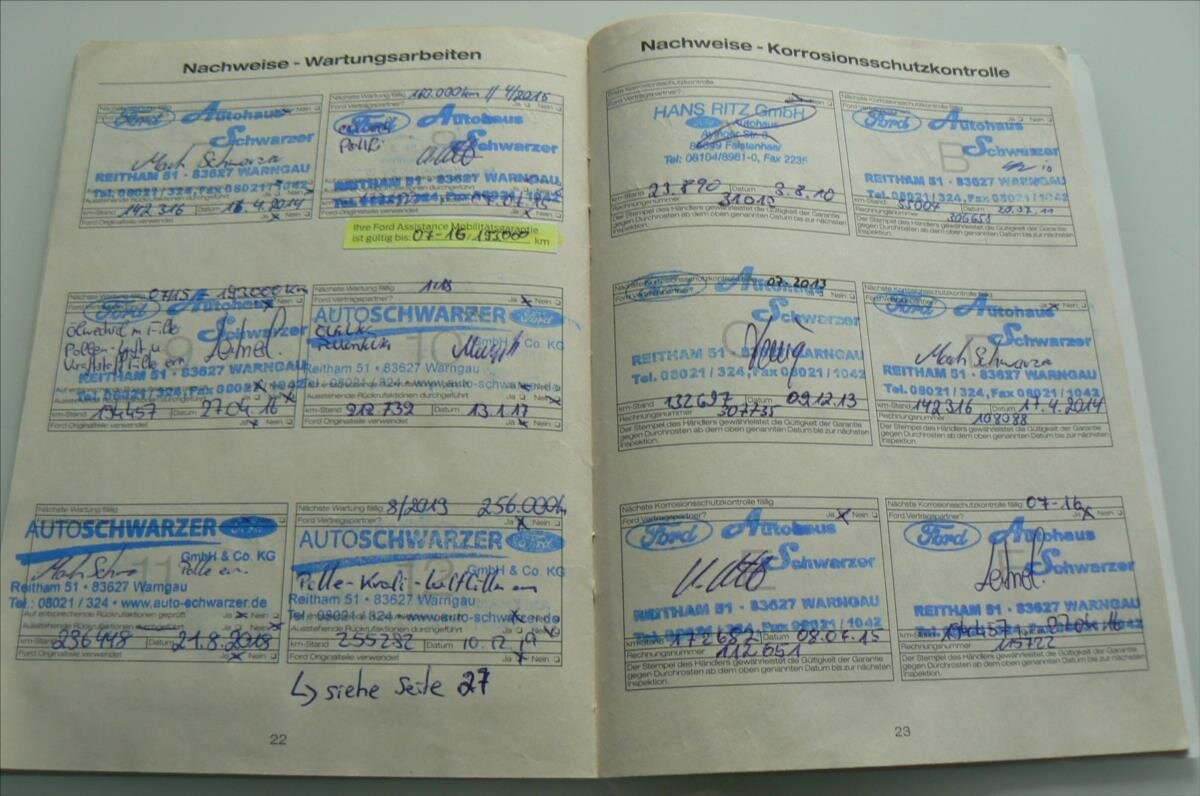 Nachweise - Wartungsarbeiten
Nächste Wartung fällig
Ford Autohaus
Schwarzer
REITHAM 51 - 83627 WARNGAU
Tel. 08021 / 324, Fax 08021 / 1042
km-Stand 142 316 Datum 4.2014
Ford Originalteile verwendet
Nächste Wartung fällig 160.000km // 4/2015
Ford Vertragspartner? Ja Nein
Ford Autohaus
Schwarzer
REITHAM 51 - 83627 WARNGAU
Ford Originalteile verwendet
Ihre Ford Assistance Mobilitätsgarantie
ist gültig bis: 07-16 / 193.000 km
Nächste Wartung fällig 07/15 - 193.000km
Ford Autohaus
Schwarzer
Ölwechsel m Filter
REITHAM 51 - 83627 WARNGAU
Ausstehende Rückrufaktionen durchgeführt
km-Stand 194457 Datum 27.04.16
Ford Originalteile verwendet Ja Nein
Nächste Wartung fällig 1/18
Ford Vertragspartner? Ja Nein
AUTOSCHWARZER Ford
GmbH & Co. KG
Reitham 51 • 83627 Warngau
Tel.: 08021 / 324 • www.auto-schwarzer.de
Ausstehende Rückrufaktionen durchgeführt
km-Stand 212 739 Datum 13.1.17
Ford Originalteile verwendet Ja Nein
Nächste Wartung fällig
AUTOSCHWARZER Ford
GmbH & Co. KG
Reitham 51 • 83627 Warngau
Tel.: 08021 / 324 • www.auto-schwarzer.de
Auf entsprechende Rückrufaktionen geprüft Ja Nein
Ausstehende Rückrufaktionen durchgeführt Ja Nein
km-Stand 236448 Datum 21.8.2018
Ford Originalteile verwendet Ja Nein
Nächste Wartung fällig 8/2019 256.000km
Ford Vertragspartner? Ja Nein
AUTOSCHWARZER Ford
GmbH & Co. KG
Reitham 51 • 83627 Warngau
Tel.: 08021 / 324 • www.auto-schwarzer.de
Ausstehende Rückrufaktionen durchgeführt
km-Stand 255232 Datum 10.12.19
Ford Originalteile verwendet Ja Nein
↳ siehe Seite 27
22
Nachweise - Korrosionsschutzkontrolle
Erste Korrosionsschutzkontrolle
Ford Vertragspartner? Nein
HANS RITZ GmbH
Autohaus
Ayinger Str. 3
Tel: 08104/8981-0, Fax 2235
km-Stand 23.890 Datum 3.8.10
Rechnungsnummer 31012
Der Stempel des Händlers gewährleistet die Gültigkeit der Garantie
gegen Durchrosten ab dem oben genannten Datum bis zur nächsten
Inspektion.
Nächste Korrosionsschutzkontrolle fällig
Ford Vertragspartner? Ja Nein
Ford Autohaus
B
Schwarzer
REITHAM 51 - 83627 WARNGAU
Tel. 08021 / 324, Fax 08021 / 1042
km-Stand Datum
Rechnungsnummer 306653
Der Stempel des Händlers gewährleistet die Gültigkeit der Garantie
gegen Durchrosten ab dem oben genannten Datum bis zur nächsten
Inspektion.
Nächste Korrosionsschutzkontrolle fällig 07.2013
Ford Autohaus
REITHAM 51 - 83627 WARNGAU
Tel. 08021 / 324, Fax 08021 / 1042
km-Stand 132697 Datum 09.12.13
Rechnungsnummer 307735
Der Stempel des Händlers gewährleistet die Gültigkeit der Garantie
gegen Durchrosten ab dem oben genannten Datum bis zur nächsten
Inspektion.
Nächste Korrosionsschutzkontrolle fällig
Ford Vertragspartner? Ja Nein
Ford Autohaus
Schwarzer
REITHAM 51 - 83627 WARNGAU
Tel. 08021 / 324, Fax 08021 / 1042
km-Stand 142316 Datum 17.4.2014
Rechnungsnummer 108988
Der Stempel des Händlers gewährleistet die Gültigkeit der Garantie
gegen Durchrosten ab dem oben genannten Datum bis zur nächsten
Inspektion.
Nächste Korrosionsschutzkontrolle fällig
Ford Vertragspartner? Ja Nein
Ford Autohaus
Schwarzer
REITHAM 51 - 83627 WARNGAU
Tel. 08021 / 324, Fax 08021 / 1042
km-Stand 172682 Datum 08.07.15
Rechnungsnummer 112651
Der Stempel des Händlers gewährleistet die Gültigkeit der Garantie
gegen Durchrosten ab dem oben genannten Datum bis zur nächsten
Inspektion.
Nächste Korrosionsschutzkontrolle fällig 07-16
Ford Vertragspartner? Ja Nein
Ford Autohaus
Schwarzer
REITHAM 51 - 83627 WARNGAU
194457 27.04.16
Rechnungsnummer 115722
Der Stempel des Händlers gewährleistet die Gültigkeit der Garantie
gegen Durchrosten ab dem oben genannten Datum bis zur nächsten
Inspektion.
23